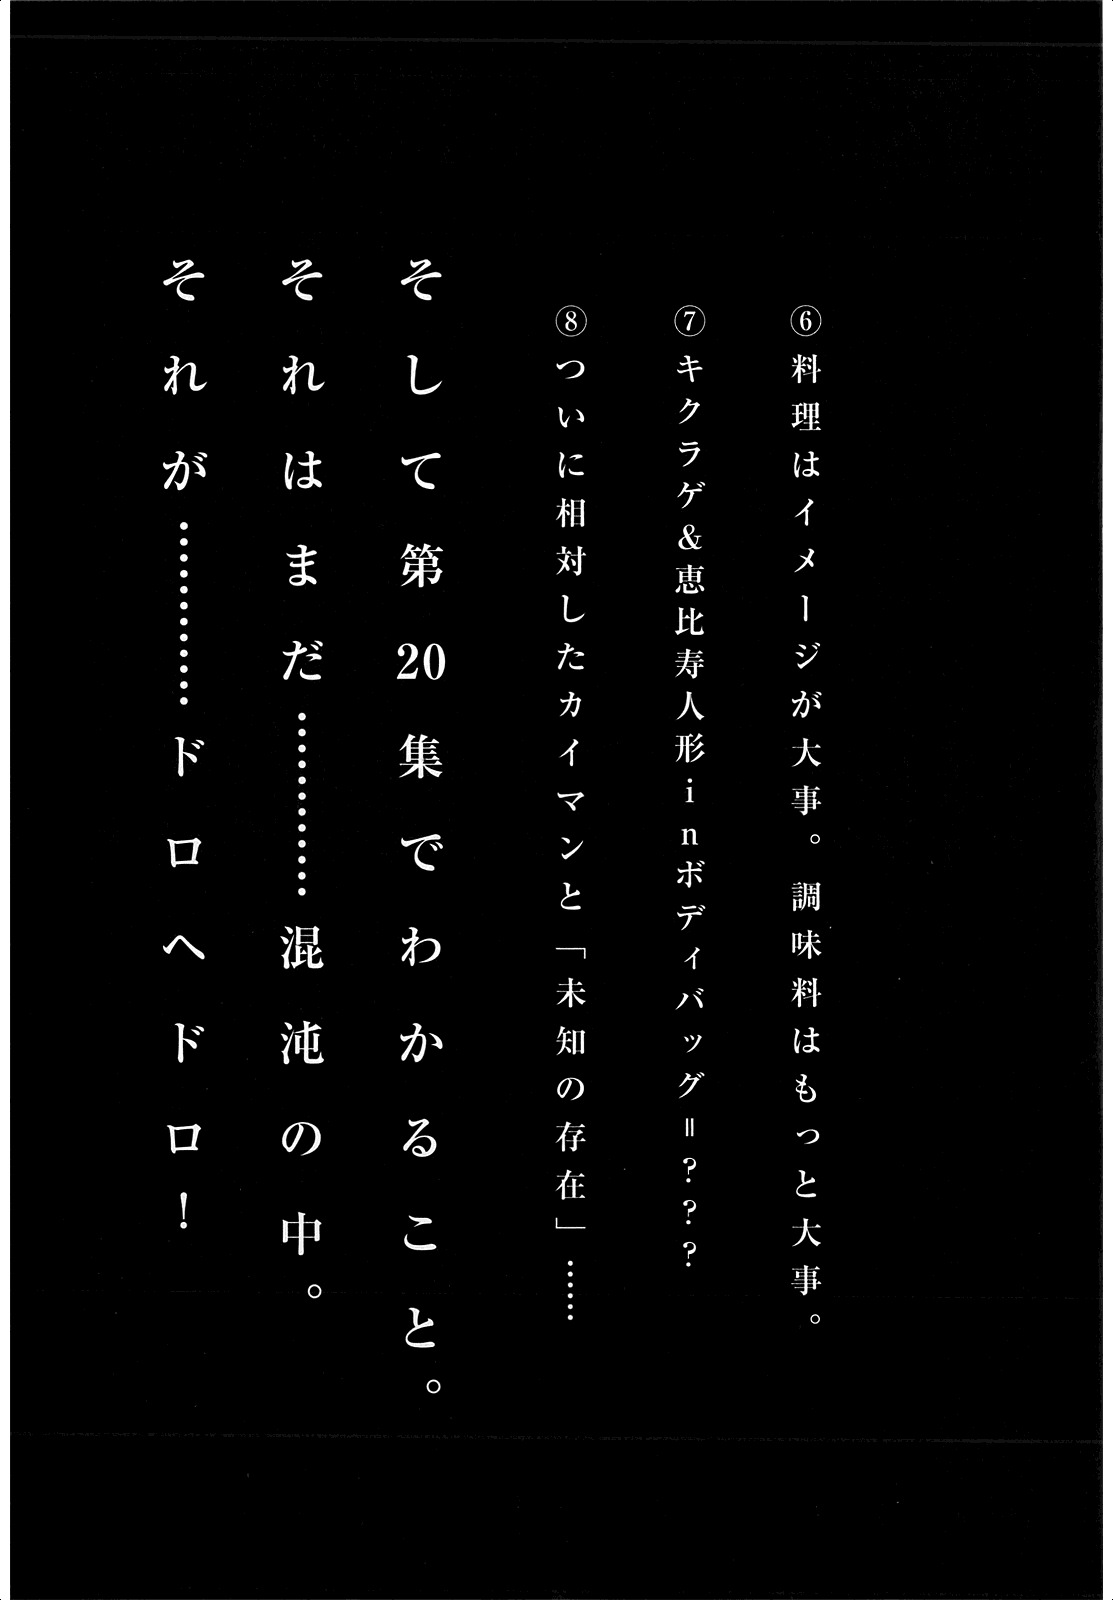 ⑥料理はイメージが大事。調味料はもっと大事。
⑦キクラゲ&恵比寿人形inボディバッグ=???
⑧ついに相対したカイマンと「未知の存在」……
そして第20集でわかること。
それはまだ…………混沌の中。
それが…………ドロヘドロ!